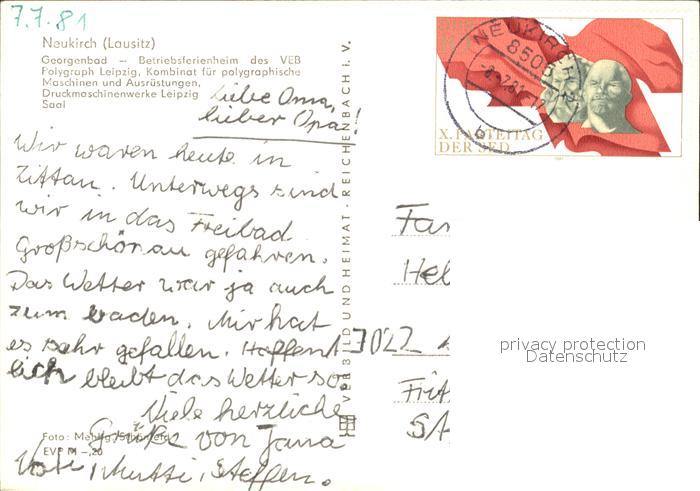 7.7.81
Neukirch (Lausitz)
Georgenbad – Betriebsferienheim des VEB
Polygraph Leipzig, Kombinat für polygraphische
Maschinen und Ausrüstungen,
Druckmaschinenwerke Leipzig
Saal
Liebe Oma,
lieber Opa!
Wir waren heute in
Zittau. Unterwegs sind
wir in das Freibad
Großschönau gefahren.
Das Wetter war ja auch
zum baden. Mir hat
es sehr gefallen. Hoffent
lich bleibt das Wetter so.
Viele herzliche
Grüße von Jana
Vati, Mutti, Steffen.
Foto:
EVP M –,20
VEB BILD UND HEIMAT · REICHENBACH i. V.
NEUKIRCH
8505
X. PARTEITAG
DER SED
Fa
Hel
7022
Frit
privacy protection
Datenschutz